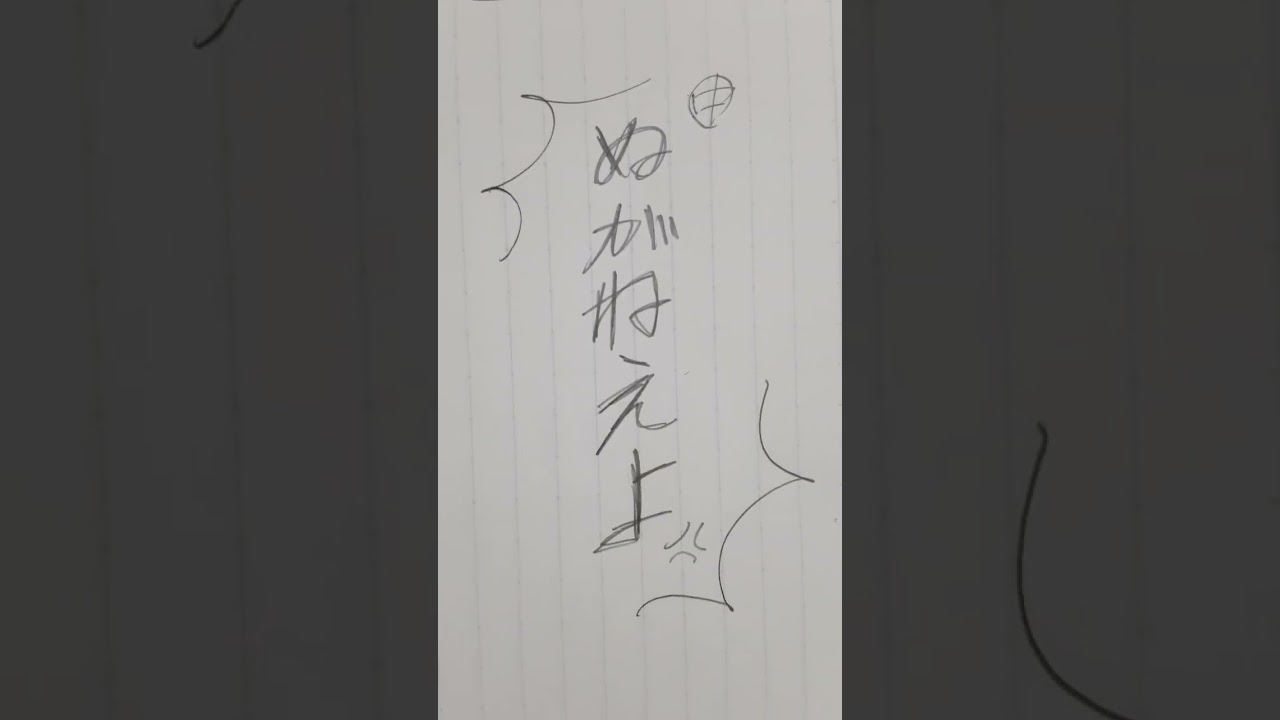 ぬがねえよ